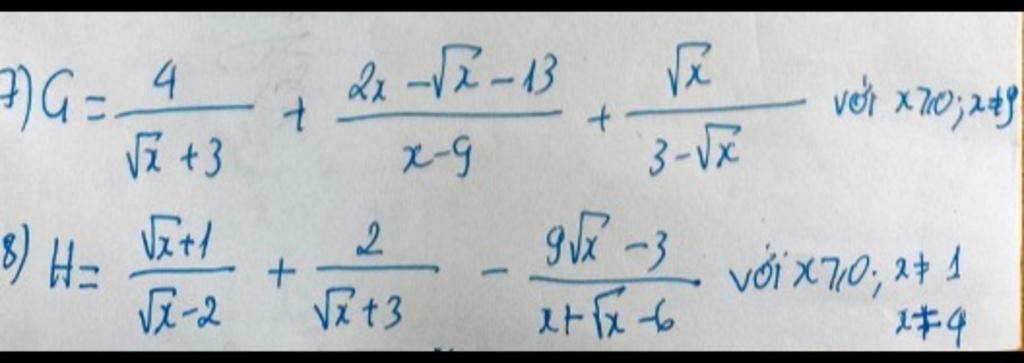 7) G = \frac{4}{\sqrt{x}+3} + \frac{2x-\sqrt{x}-13}{x-9} + \frac{\sqrt{x}}{3-\sqrt{x}} với x ≥ 0; x ≠ 9
8) H = \frac{\sqrt{x}+1}{\sqrt{x}-2} + \frac{2}{\sqrt{x}+3} - \frac{9\sqrt{x}-3}{x+\sqrt{x}-6} với x ≥ 0; x ≠ 1
x ≠ 4